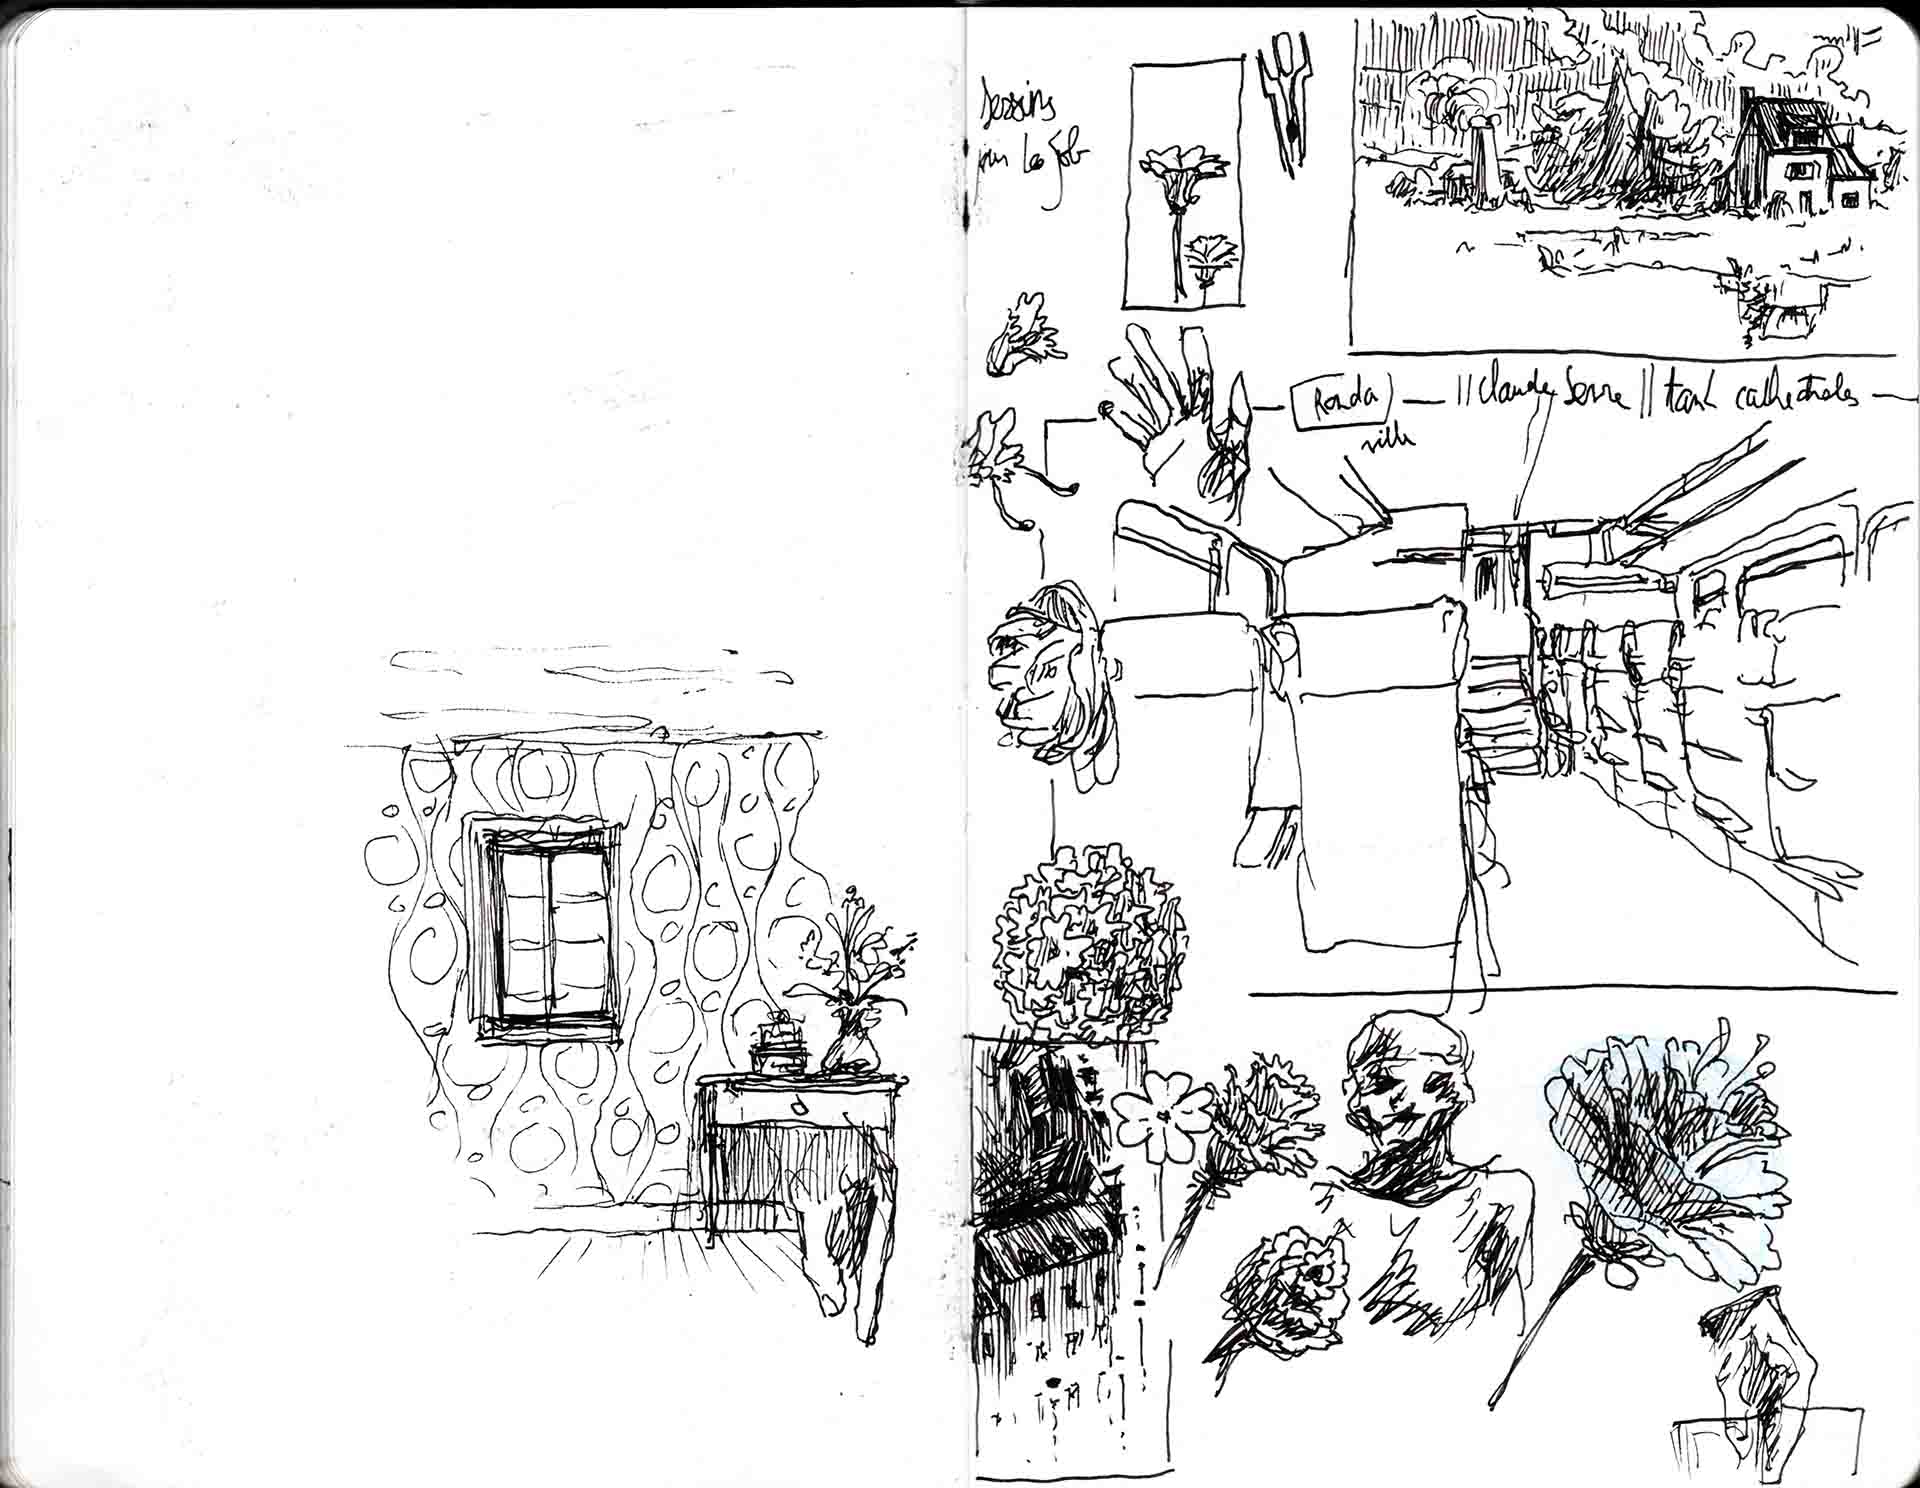 Dessins
pour le Job
Ronda — || Claude Serre || tank cathédrales —
ville